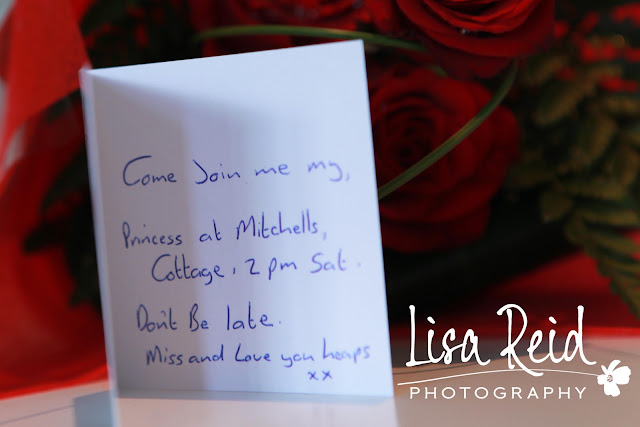 Come Join me my,
Princess at Mitchells,
Cottage, 2 pm Sat.
Don't Be late.
Miss and Love you heaps
xx
Lisa Reid
PHOTOGRAPHY